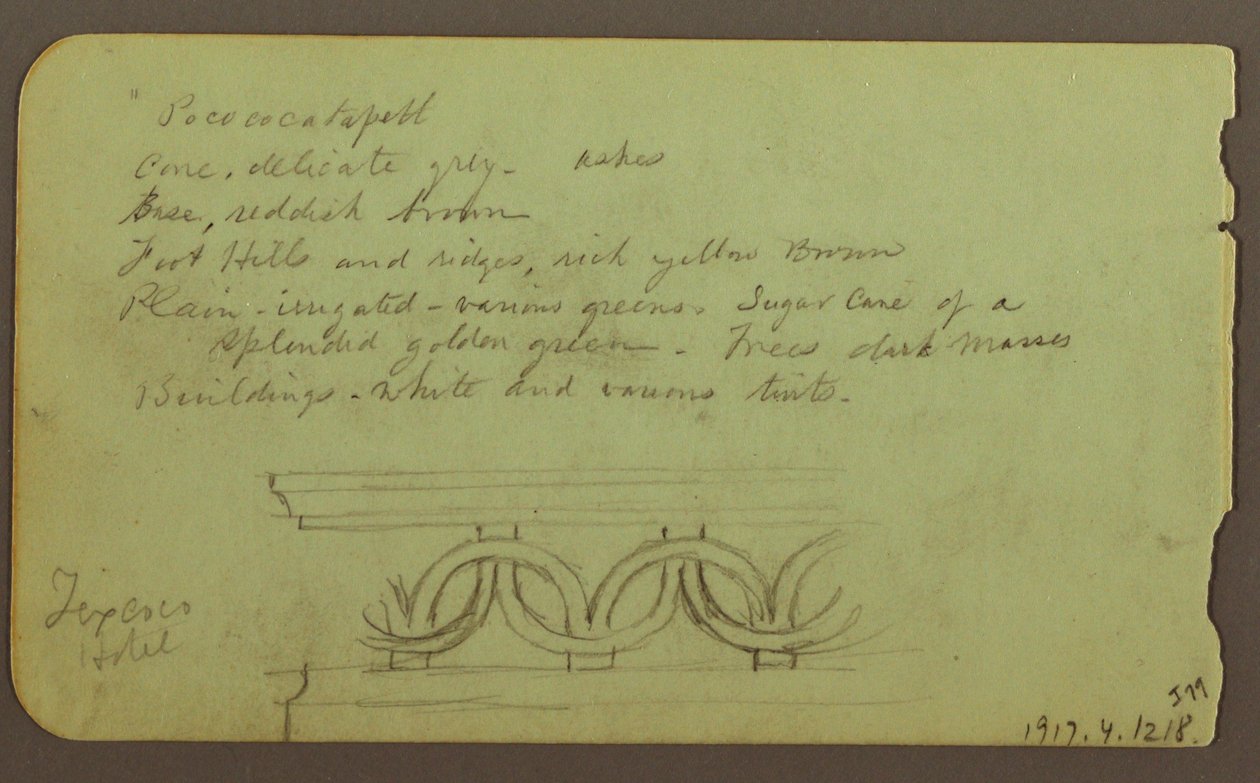 " Pocococatapetl
Cone, delicate grey - ashes
Base, reddish brown
Foot Hills and ridges, rich yellow Brown
Plain - irrigated - various greens. Sugar Cane of a
splendid golden green - Trees dark masses
Buildings - white and various tints -
Texcoco
Hotel
J79
1917.4.1218.